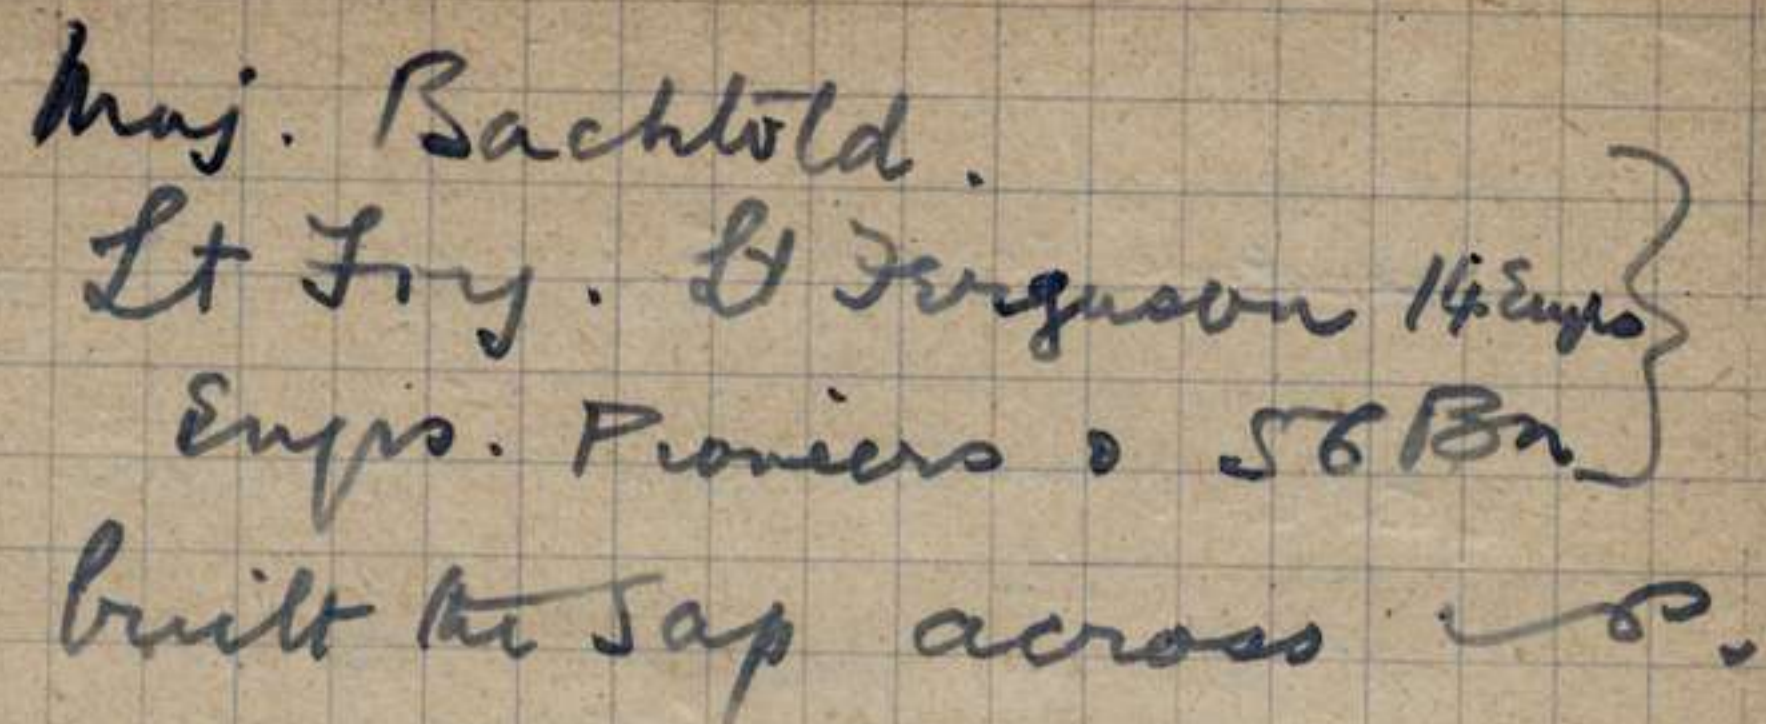 Maj. Bachtold.
Lt Fry. Lt Ferguson 14 Engrs
Engrs. Pioneers & 56 Bn
built the sap across